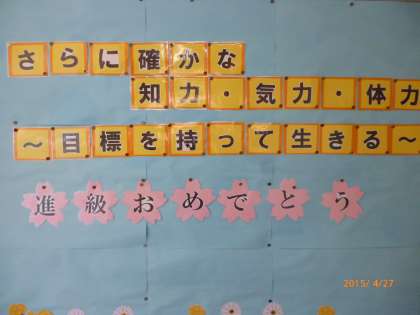 さらに確かな
知力・気力・体力
～目標を持って生きる～
進級おめでとう
2015/ 4/27